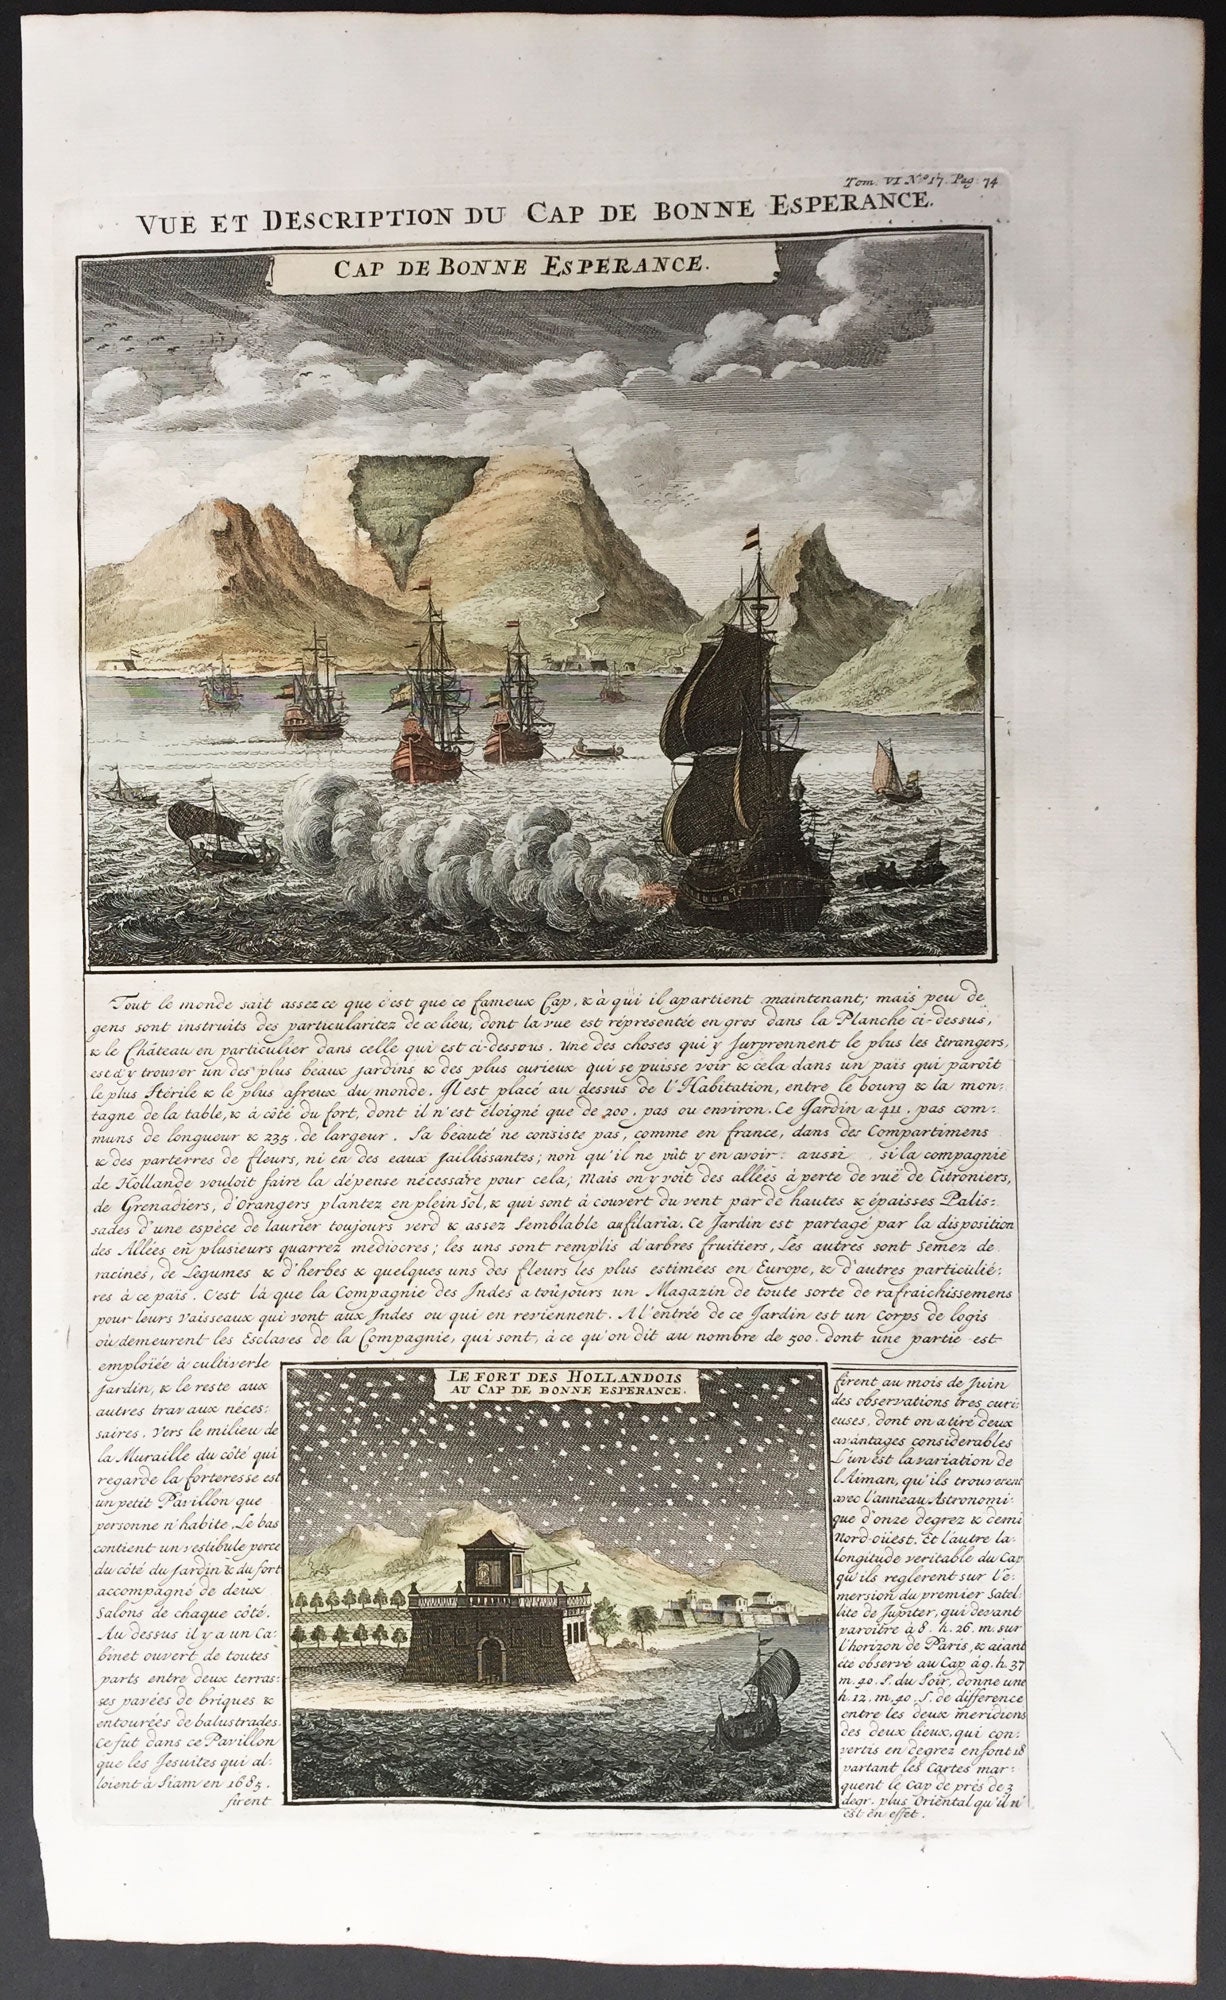 Tom. VI N.º 17. Pag. 74
VUE ET DESCRIPTION DU CAP DE BONNE ESPERANCE.
CAP DE BONNE ESPERANCE.
Tout le monde sait assez ce que c'est que ce fameux Cap, & à qui il apartient maintenant; mais peu de
gens sont instruits des particularitez de ce lieu, dont la vue est réprésentée en gros dans la Planche ci-dessus,
& le Château en particulier dans celle qui est ci-dessous. Une des choses qui y surprennent le plus les Etrangers,
est d'y trouver un des plus beaux jardins & des plus curieux qui se puisse voir & cela dans un païs qui paroît
le plus stérile & le plus afreux du monde. Il est placé au dessus de l'Habitation, entre le bourg & la mon-
tagne de la table, & à côté du fort, dont il n'est éloigné que de 200. pas ou environ. Ce Jardin a 411. pas com-
muns de longueur & 235. de largeur. Sa beauté ne consiste pas, comme en france, dans des Compartimens
& des parterres de fleurs, ni en des eaux jaillissantes; non qu'il ne pût y en avoir aussi si la compagnie
de Hollande vouloit faire la dépense nécessaire pour cela; Mais on y voit des allées à perte de vuë de Citroniers,
de Grenadiers, d'Orangers plantez en plein sol, & qui sont à couvert du vent par de hautes & épaisses Palis-
sades d'une espèce de laurier toujours verd & assez semblable au filaria. Ce Jardin est partagé par la disposition
des Allées en plusieurs quarrez médiocres; les uns sont remplis d'arbres fruitiers, Les autres sont semez de
racines, de Légumes & d'herbes & quelques uns des fleurs les plus estimées en Europe, & d'autres particulié-
res à ce païs. C'est là que la Compagnie des Indes a toujours un Magazin de toute sorte de rafraichissemens
pour leurs Vaisseaux qui vont aux Indes ou qui en reviennent. A l'entrée de ce Jardin est un corps de logis
où demeurent les Esclaves de la Compagnie, qui sont, à ce qu'on dit au nombre de 500. dont une partie est
emploïée à cultiver le
Jardin, & le reste aux
autres travaux néces-
saires. Vers le milieu de
la Muraille du côté qui
regarde la forteresse est
un petit Pavillon que
personne n'habite. Le bas
contient un vestibule percé
du côté du Jardin & du fort
accompagné de deux
Salons de chaque côté.
Au dessus il y a un Ca-
binet ouvert de toutes
parts entre deux terras-
ses pavées de briques &
entourées de balustrades.
Ce fut dans ce Pavillon
que les Jesuites qui al-
loient à Siam en 1685.
firent
LE FORT DES HOLLANDOIS
AU CAP DE BONNE ESPERANCE.
firent au mois de Juin
des observations tres curi-
euses, dont on a tiré deux
avantages considerables
L'un est la variation de
l'Aiman, qu'ils trouverent
avec l'anneau Astronomi-
que d'onze degrez & demi
Nord-oüest. Et l'autre la
longitude veritable du Cap
qu'ils reglerent sur l'é-
mersion du premier Satel-
lite de Jupiter, qui devant
paroitre à 8. h. 26. m. sur
l'horizon de Paris, & aiant
été observé au Cap à 9. h. 37
m. 40. S. du Soir, donne une
h. 12. m. 40. S. de différence
entre les deux meridiens
des deux lieux, qui con-
vertis en degrez en font 18
partant les Cartes mar-
quent le Cap de près de 3
degr. plus Oriental qu'il n'
est en effet.